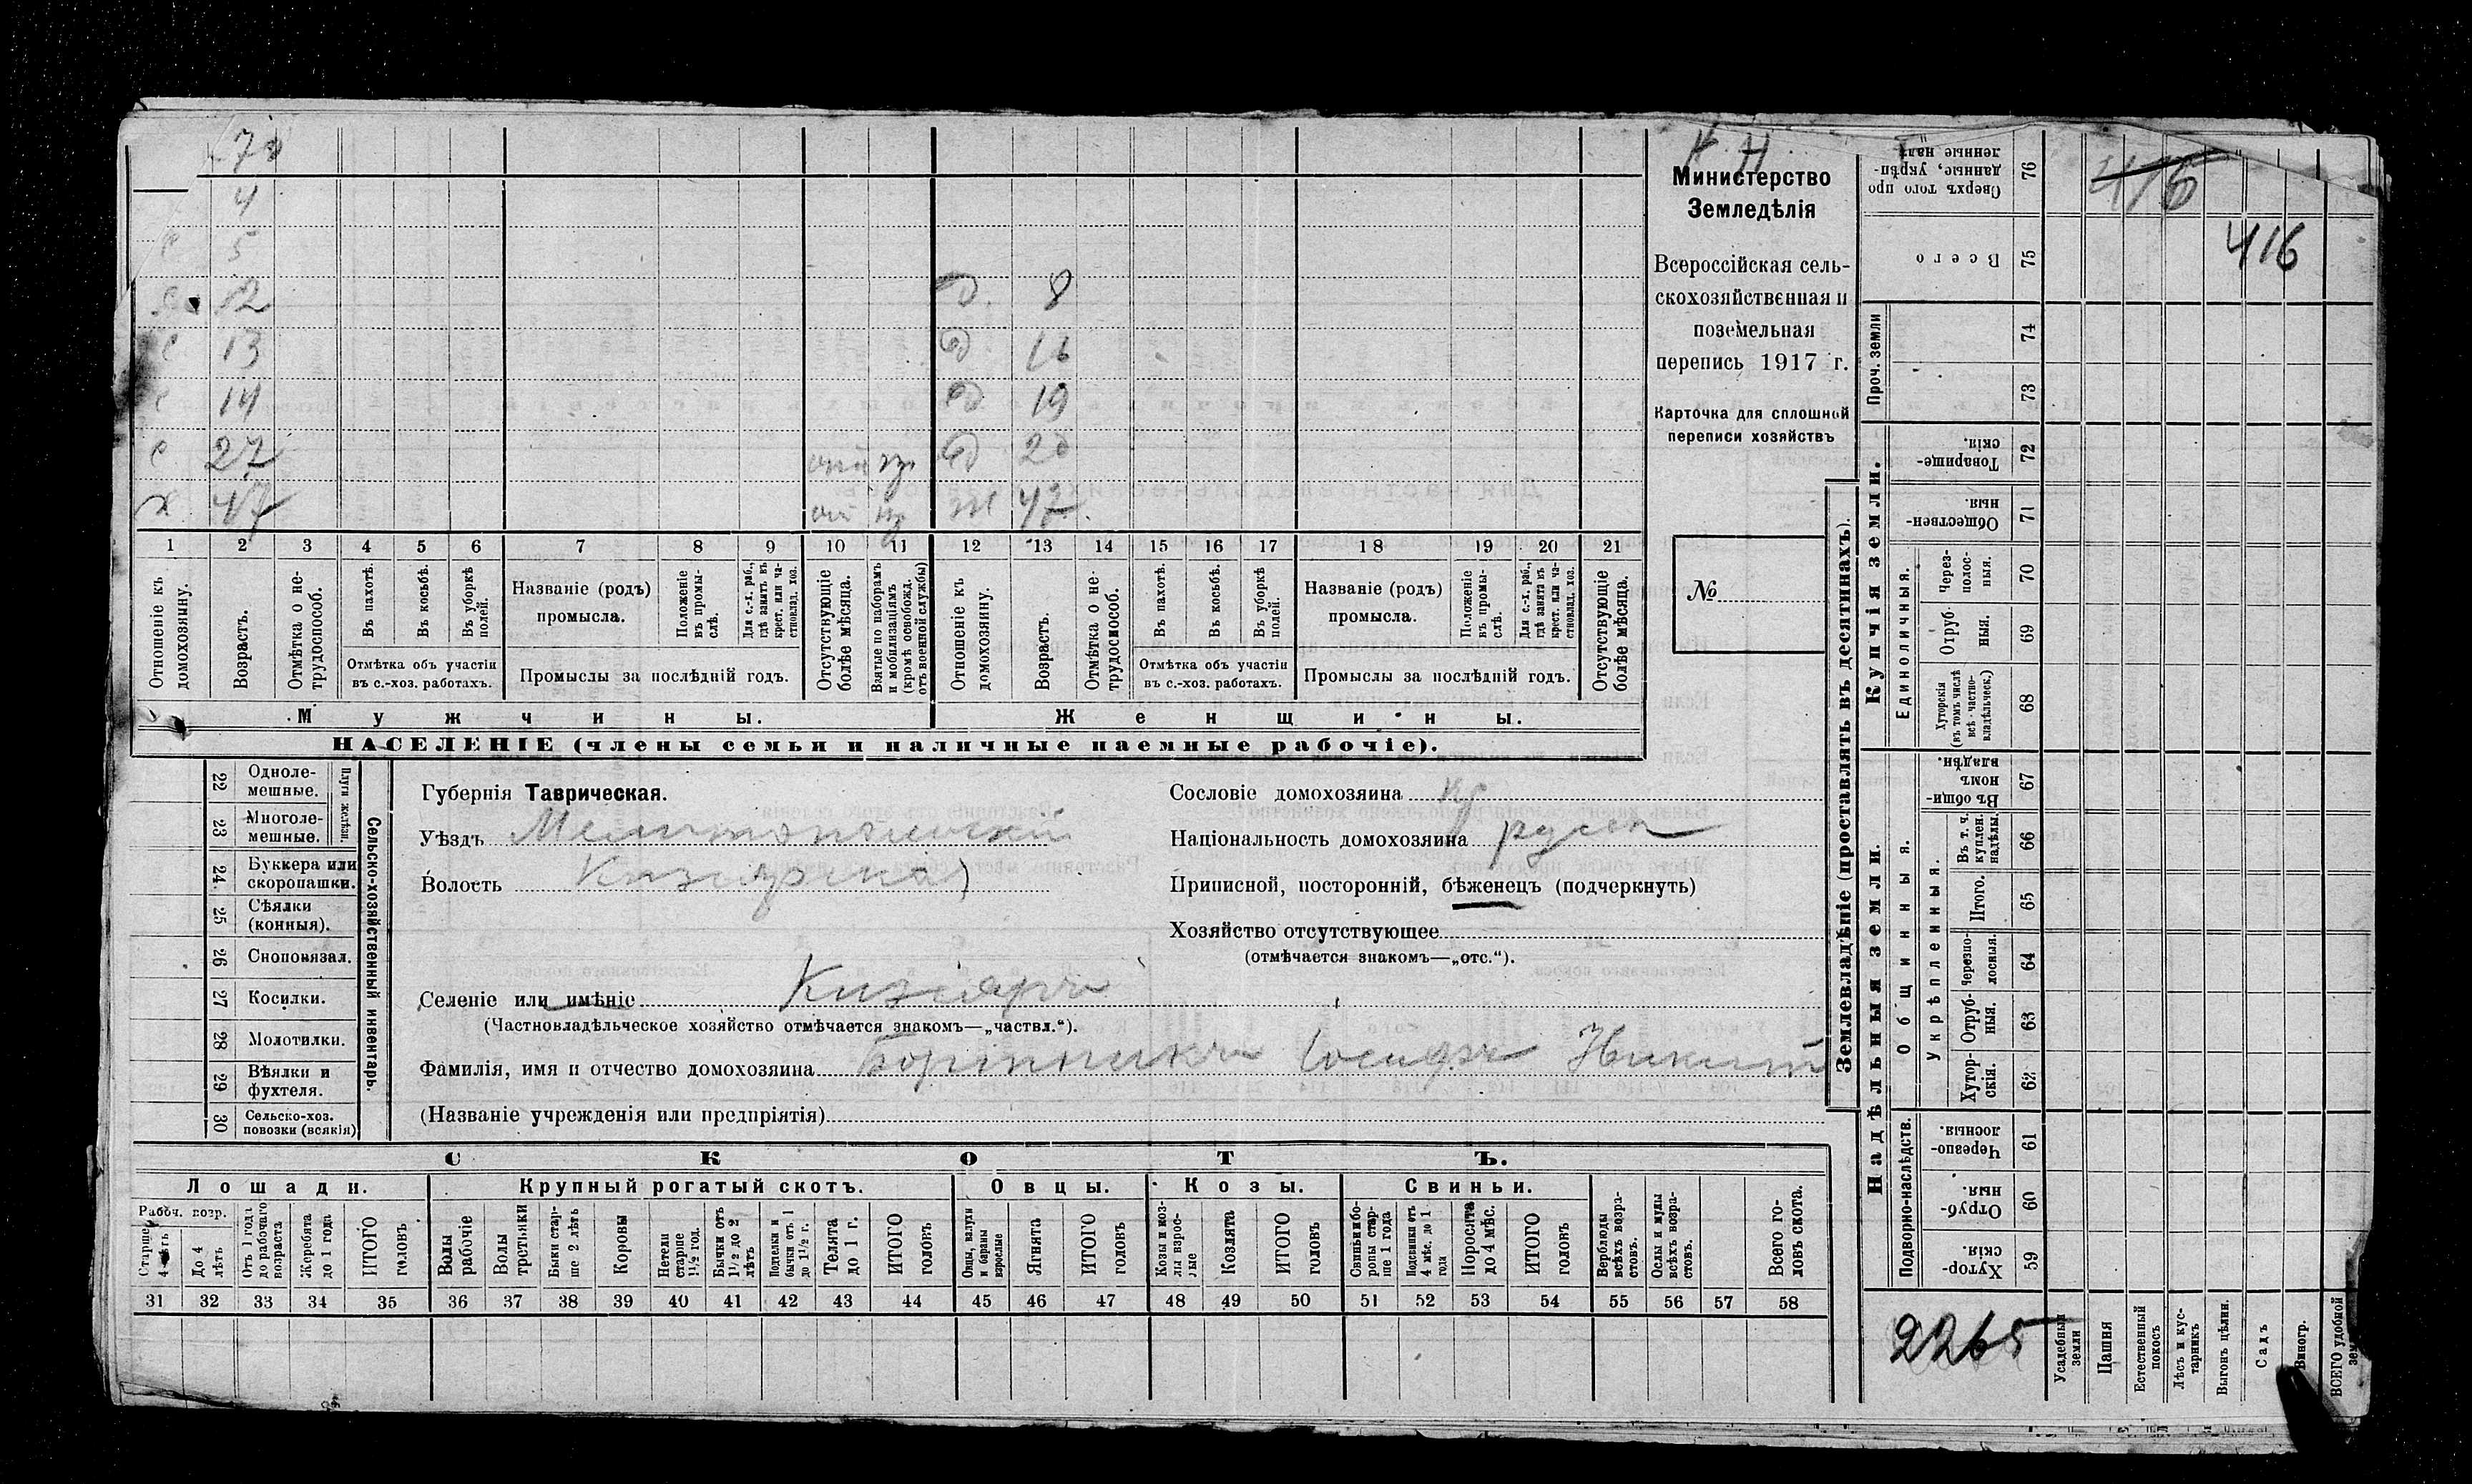 4
с 5
с 12 д. 8
с 13 д 16
с 14 д 19
с 27 д 20
х 47 ж 47
1 2 3 4 5 6 7 8 9 10 11 12 13 14 15 16 17 18 19 20 21
Отношеніе къ домохозяину.
Возрастъ.
Отмѣтка о не-трудоспособ.
Въ пахотѣ.
Въ косьбѣ.
Въ уборкѣ полей.
Отмѣтка объ участіи въ с.-хоз. работахъ.
Названіе (родъ) промысла.
Положеніе въ промы-слѣ.
Для с.-х. раб., гдѣ занятъ въ крест. или ча-стновлад. хоз.
Промыслы за послѣдній годъ.
Отсутствующіе болѣе мѣсяца.
Взятые по наборамъ и мобилизаціямъ (кромѣ освобожд. отъ военной службы)
Отношеніе къ домохозяину.
Возрастъ.
Отмѣтка о не-трудоспособ.
Въ пахотѣ.
Въ косьбѣ.
Въ уборкѣ полей.
Отмѣтка объ участіи въ с.-хоз. работахъ.
Названіе (родъ) промысла.
Положеніе въ промы-слѣ.
Для с.-х. раб., гдѣ занята въ крест. или ча-стновлад. хоз.
Промыслы за послѣдній годъ.
Отсутствующіе болѣе мѣсяца.
Мужчины.
Женщины.
НАСЕЛЕНІЕ (члены семьи и наличные наемные рабочіе).
Министерство
Земледѣлія
Всероссійская сель-
скохозяйственная и
поземельная
перепись 1917 г.
Карточка для сплошной
переписи хозяйствъ
№
22 Одноле-мешные.
23 Многоле-мешные.
Плуги желѣзн.
24 Буккера или скоропашки.
25 Сѣялки (конныя).
26 Сноповязал.
27 Косилки.
28 Молотилки.
29 Вѣялки и фухтеля.
30 Сельско-хоз. повозки (всякія)
Сельско-хозяйственный инвентарь.
Губернія Таврическая.
Уѣздъ Мелитопольскій
Волость
Селеніе или имѣніе Кизіяръ
(Частновладѣльческое хозяйство отмѣчается знакомъ—„частвл.“).
Фамилія, имя и отчество домохозяина
(Названіе учрежденія или предпріятія)
Сословіе домохозяина кр
Національность домохозяина русск
Приписной, посторонній, бѣженецъ (подчеркнуть)
Хозяйство отсутствующее
(отмѣчается знакомъ—„отс.“).
СКОТЪ.
Лошади. Крупный рогатый скотъ. Овцы. Козы. Свиньи.
Рабоч. возр.
Старше 4 лѣтъ
До 4 лѣтъ
Отъ 1 года до рабочаго возраста
Жеребята до 1 года
ИТОГО головъ
Волы рабочіе
Волы третьяки
Быки стар-ше 2 лѣтъ
Коровы
Нетели старше 1½ год.
Бычки отъ 1½ до 2 лѣтъ
Подтелки и бычки отъ 1 до 1½ г.
Телята до 1 г.
ИТОГО головъ
Овцы, валухи и бараны взрослые
Ягнята
ИТОГО головъ
Козы и коз-лы взрос-лые
Козлята
ИТОГО головъ
Свиньи и бо-ровы стар-ше 1 года
Подсвинки отъ 4 мѣс. до 1 года
Поросята до 4 мѣс.
ИТОГО головъ
Верблюды всѣхъ возра-стовъ.
Ослы и мулы всѣхъ возра-стовъ.
Всего го-ловъ скота.
31 32 33 34 35 36 37 38 39 40 41 42 43 44 45 46 47 48 49 50 51 52 53 54 55 56 57 58
Землевладѣніе (проставлять въ десятинахъ).
Купчія земли.
Надѣльныя земли.
Сверхъ того про данные, укрѣп-ленные надѣ 76
Всего 75
Проч. земли
74
73
Товарище-скія. 72
Обществен-ныя. 71
Единоличныя.
Через-полос-ныя. 70
Отруб-ныя. 69
Хуторскія (въ томъ числѣ всѣ частно-владѣльческ.) 68
Общинныя.
Въ общи-номъ владѣн. 67
Въ т. ч. куплен. надѣлы. 66
Укрѣпленныя.
Итого. 65
Черезпо-лосныя. 64
Отруб-ныя. 63
Хутор-скія. 62
Подворно-наслѣдств.
Черезпо-лосныя. 61
Отруб-ныя. 60
Хутор-скія. 59
416
416
2265
Усадебныя земли
Пашня
Естественный покосъ
Лѣсъ и кус-тарникъ
Выгонъ цѣлин.
Садъ
Виногр.
ВСЕГО удобной